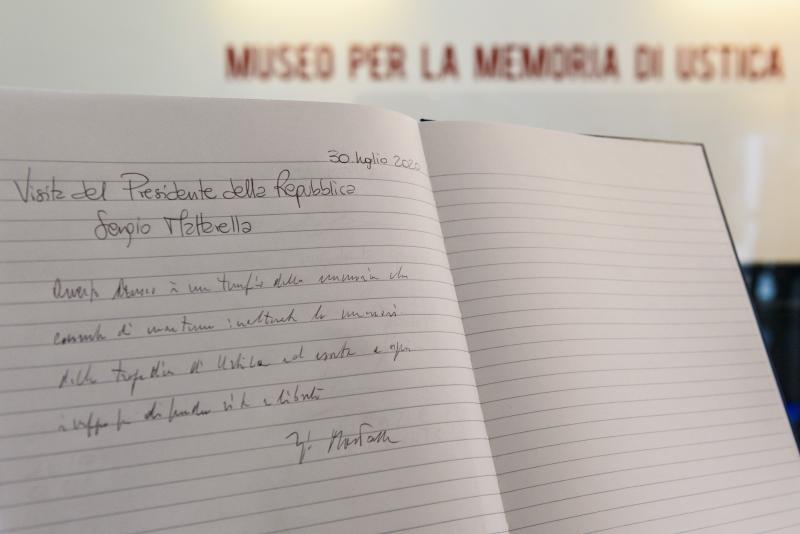 MUSEO PER LA MEMORIA DI USTICA
30 luglio 2020
Visita del Presidente della Repubblica
Sergio Mattarella
Questo Museo è un tempio della memoria che
consente di mantenere la
della tragedia di Ustica ed a ogni
difendere vita e libertà